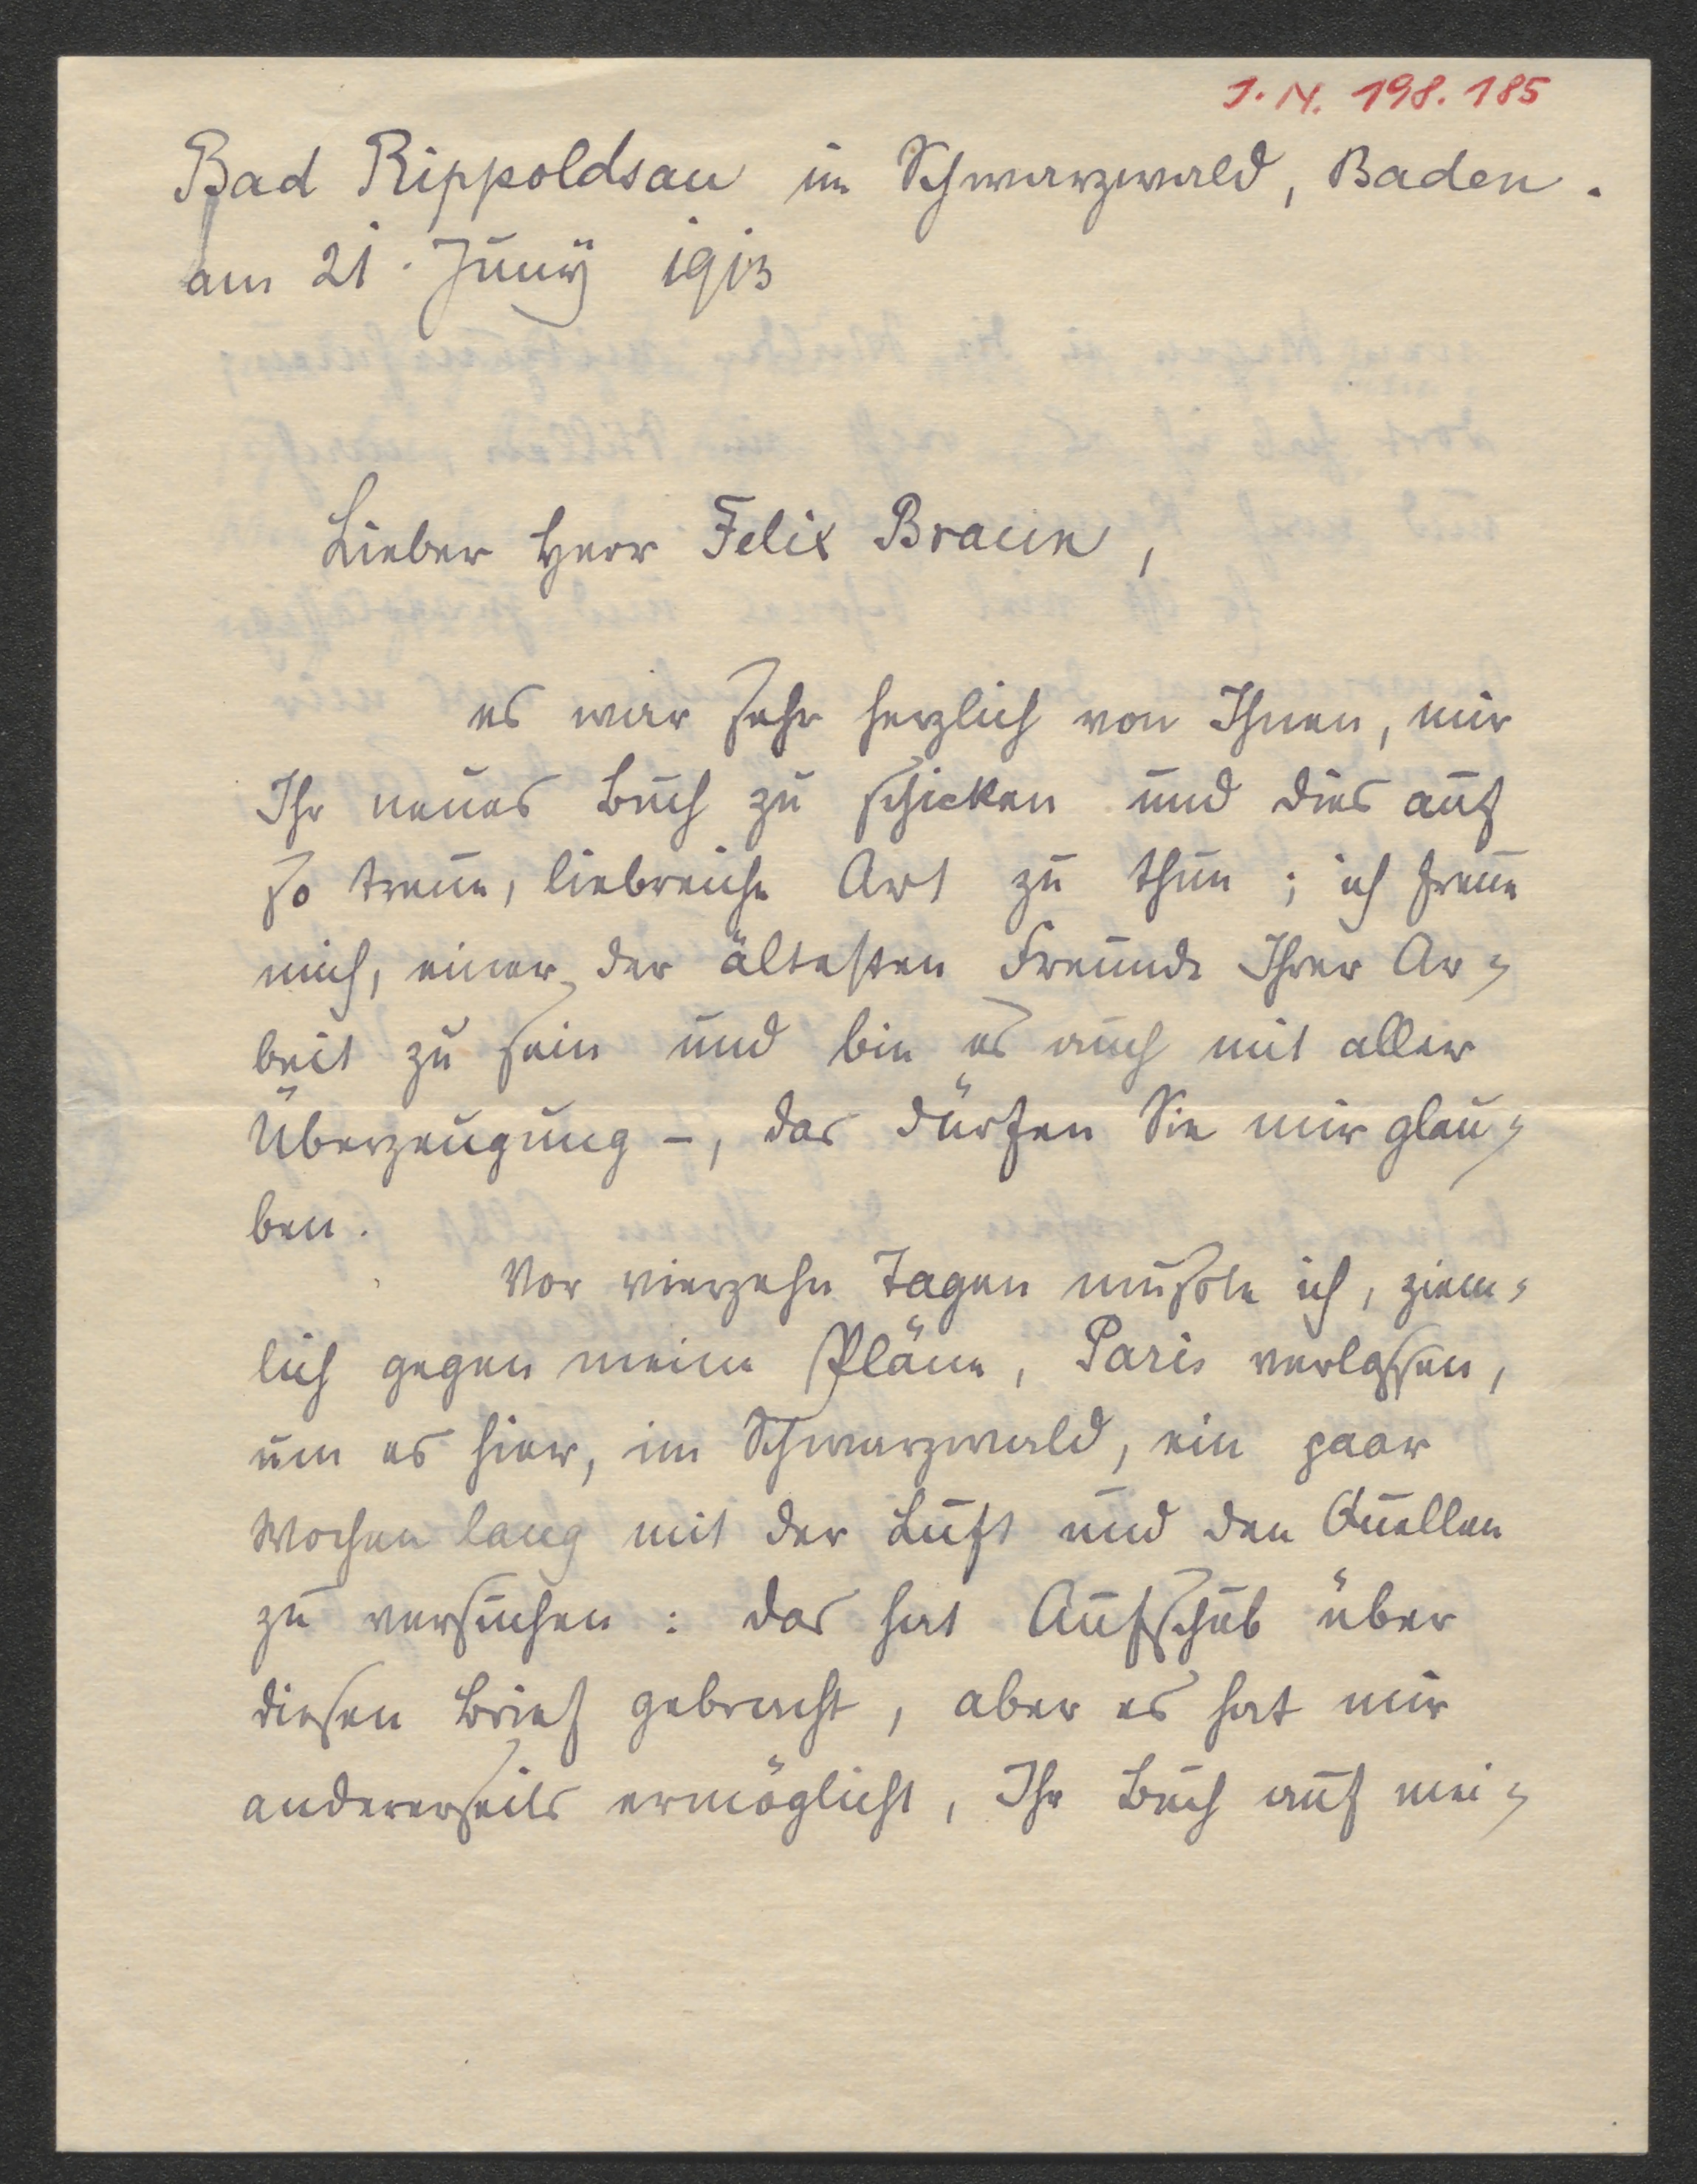 J. N. 198.185
Bad Rippoldsau im Schwarzwald, Baden.
am 21. Juny 1913
Lieber Herr Felix Braun,
es war sehr herzlich von Ihnen, mir
Ihr neues Buch zu schicken und dies auf
so treue, liebreiche Art zu thun; ich freue
mich, einer der ältesten Freunde Ihrer Ar-
beit zu sein und bin es auch mit aller
Überzeugung –, das dürfen Sie mir glau-
ben.
Vor vierzehn Tagen mußte ich, ziem-
lich gegen meine Pläne, Paris verlassen,
um es hier, im Schwarzwald, ein paar
Wochen lang mit der Luft und den Quellen
zu versuchen: das hat Aufschub über
diesen Brief gebracht, aber es hat mir
andererseits ermöglicht, Ihr Buch auf mei-